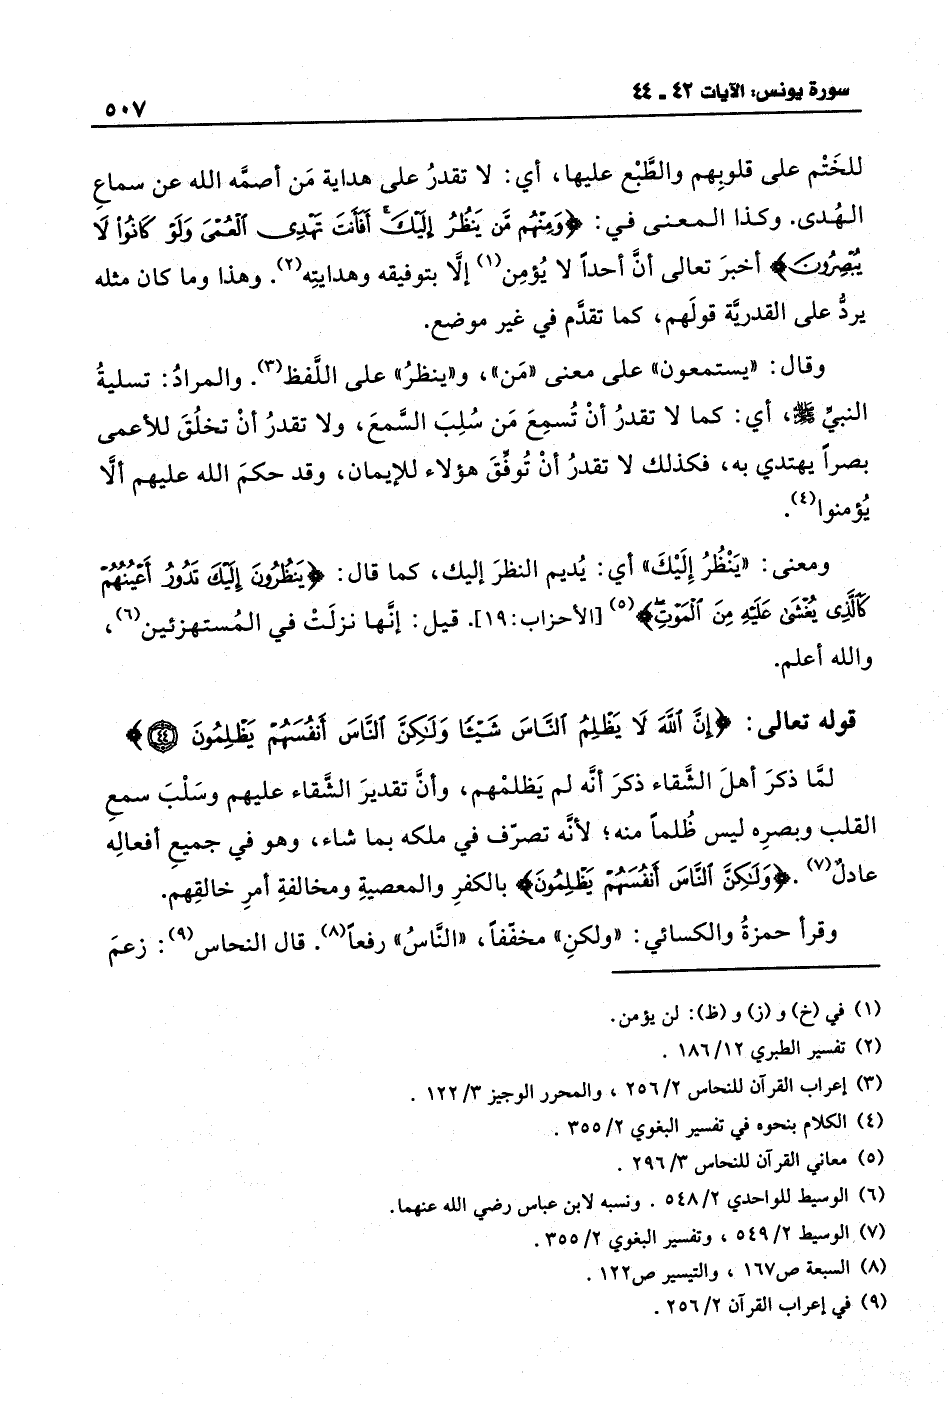 سورة يونس: الآيات ٤٢ ـ ٤٤
٥٠٧
للخَتْم على قلوبِهم والطَّبْع عليها، أي: لا تقدرُ على هداية مَن أصمَّه الله عن سماعِ
الهُدى. وكذا المعنى في: ﴿وَمِنْهُم مَّن يَنظُرُ إِلَيْكَ أَفَأَنتَ تَهْدِى الْعُمْىَ وَلَوْ كَانُوا لَا
يُبْصِرُونَ﴾ أخبرَ تعالى أنَّ أحداً لا يُؤمِن(١) إلَّا بتوفيقه وهدايتِه(٢). وهذا وما كان مثله
يردُّ على القدريَّة قولَهم، كما تقدَّم في غير موضع.
وقال: «يستمعون» على معنى «مَن»، و«ينظرُ» على اللَّفظ(٣). والمرادُ: تسليةُ
النبيِّ ﷺ، أي: كما لا تقدرُ أنْ تُسمِعَ مَن سُلِبَ السَّمعَ، ولا تقدرُ أنْ تخلُقَ للأعمى
بصراً يهتدي به، فكذلك لا تقدرُ أنْ تُوفِّقَ هؤلاء للإيمان، وقد حكمَ الله عليهم ألَّا
يُؤمنوا(٤).
ومعنى: «يَنْظُرُ إِلَيْكَ» أي: يُديم النظرَ إليك، كما قال: ﴿يَنظُرُونَ إِلَيْكَ تَدُورُ أَعْيُنُهُمْ
كَالَّذِى يُغْشَىٰ عَلَيْهِ مِنَ الْمَوْتِ﴾(٥) [الأحزاب:١٩]. قيل: إنَّها نزلَتْ في المُستهزئين(٦)،
والله أعلم.
قوله تعالى: ﴿إِنَّ اللَّهَ لَا يَظْلِمُ النَّاسَ شَيْئًا وَلَٰكِنَّ النَّاسَ أَنفُسَهُمْ يَظْلِمُونَ ٤٤﴾
لمَّا ذكرَ أهلَ الشَّقاء ذكرَ أنَّه لم يَظلمْهم، وأنَّ تقديرَ الشَّقاء عليهم وسَلْبَ سمعِ
القلب وبصرِه ليس ظُلماً منه؛ لأنَّه تصرّف في ملكه بما شاء، وهو في جميعِ أفعالِه
عادلٌ(٧). ﴿وَلَٰكِنَّ النَّاسَ أَنفُسَهُمْ يَظْلِمُونَ﴾ بالكفرِ والمعصيةِ ومخالفةِ أمرِ خالقِهم.
وقرأ حمزةُ والكسائي: «ولكنِ» مخفّفاً، «النَّاسُ» رفعاً(٨). قال النحاس(٩): زعمَ
(١) في (خ) و (ز) و (ظ): لن يؤمن.
(٢) تفسير الطبري ١٢/١٨٦ .
(٣) إعراب القرآن للنحاس ٢/٢٥٦ ، والمحرر الوجيز ٣/١٢٢ .
(٤) الكلام بنحوه في تفسير البغوي ٢/٣٥٥ .
(٥) معاني القرآن للنحاس ٣/٢٩٦ .
(٦) الوسيط للواحدي ٢/٥٤٨ . ونسبه لابن عباس رضي الله عنهما.
(٧) الوسيط ٢/٥٤٩ ، وتفسير البغوي ٢/٣٥٥ .
(٨) السبعة ص١٦٧ ، والتيسير ص١٢٢ .
(٩) في إعراب القرآن ٢/٢٥٦ .